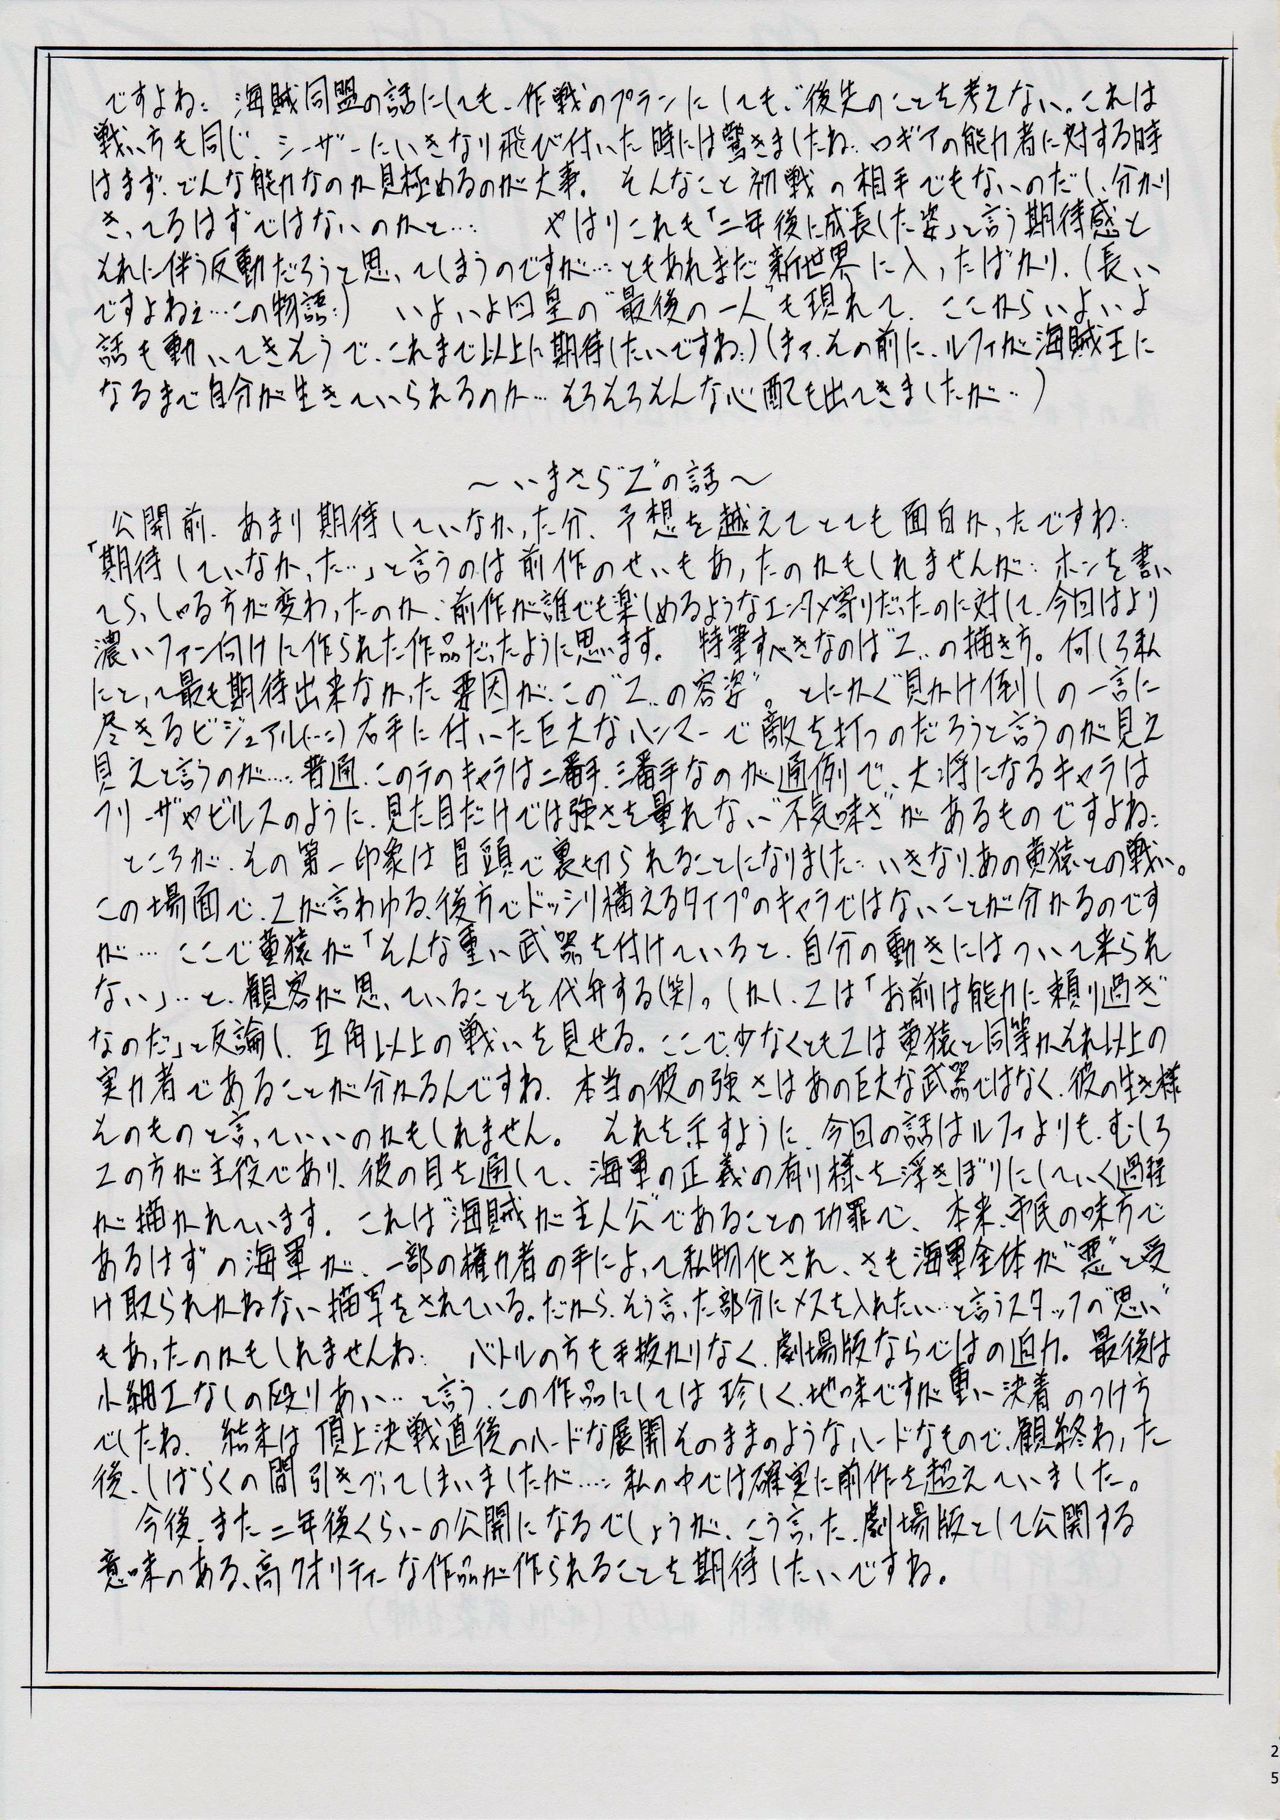 ですよね… 海賊同盟の話にしても、作戦のプランにしても、"後先のことを考えない"。これは
戦い方も同じ、シーザーにいきなり飛び付いた時には驚きましたね… ロギアの能力者に対する時
はまず、どんな能力なのか見極めるのが大事。 そんなこと初戦の相手でもないのだし、分かり
きってるはずではないのかと…… やはりこれも「二年後に成長した姿」と言う期待感と
それに伴う反動だろうと思ってしまうのですが…… ともあれまだ新世界に入ったばかり、(長い
ですよねェ…この物語…) いよいよ四皇の"最後の一人"も現れて、ここからいよいよ
話も動いてきそうで、これまで以上に期待したいですね…)(まァ、その前に、ルフィが海賊王に
なるまで自分が生きていられるのか… そろそろそんな心配も出てきましたが…)
〜いまさら"Z"の話〜
公開前、あまり期待していなかった分、予想を越えてとても面白かったですね…
「期待していなかった…」と言うのは前作のせいもあったのかもしれませんが… ホンを書い
てらっしゃる方が変わったのか、前作が誰でも楽しめるようなエンタメ寄りだったのに対して、今回はより
濃いファン向けに作られた作品だったように思います。 特筆すべきなのは"Z"の描き方。何しろ私
にとって最も期待出来なかった要因が、この"Z"の容姿"。とにかく"見かけ倒し"の一言に
尽きるビジュアル(…;)右手に付いた巨大なハンマーで敵を打つのだろうと言うのが見え
見えと言うのが…… 普通、このテのキャラは二番手、三番手なのが通例で、大将になるキャラは
フリーザやビルスのように、見た目だけでは強さを量れない"不気味さ"があるものですよね…
ところが、その第一印象は冒頭で裏切られることになりました… いきなり、あの黄猿との戦い。
この場面で、Zが言わゆる、後方でドッシリ構えるタイプのキャラではないことが分かるのです
が… ここで黄猿が「そんな重い武器を付けていると、自分の動きにはついて来られ
ない」…と、観客が思っていることを代弁する(笑)。しかし、Zは「お前は能力に頼り過ぎ
なのだ」と反論し、互角以上の戦いを見せる。ここで、少なくともZは黄猿と同等かそれ以上の
実力者であることが分かるんですね、 本当の彼の強さはあの巨大な武器ではなく、彼の生き様
そのものと言っていいのかもしれません。 それを示すように、今回の話はルフィよりも、むしろ
Zの方が主役であり、彼の目を通して、海軍の正義の有り様を浮きぼりにしていく過程
が描かれています。これは"海賊が主人公"であることの功罪で、本来、市民の味方で
あるはずの海軍が、一部の権力者の手によって私物化され、さも海軍全体が"悪"と受
け取られかねない描写をされている。だから、そう言った部分にメスを入れたい…と言うスタッフの"思い"
もあったのかもしれませんね… バトルの方も手抜かりなく、劇場版ならではの迫力。最後は
小細工なしの殴りあい… と言う、この作品にしては珍しく、地味ですが重い決着のつけ方
でしたね、 結末は頂上決戦直後のハードな展開そのままのようなハードなもので、観終わった
後、しばらくの間引きづってしまいましたが…… 私の中では確実に前作を超えていました。
今後、また二年後くらいの公開になるでしょうが、こう言った、劇場版として公開する
意味のある、高クオリティーな作品が作られることを期待したいですね。
2
5